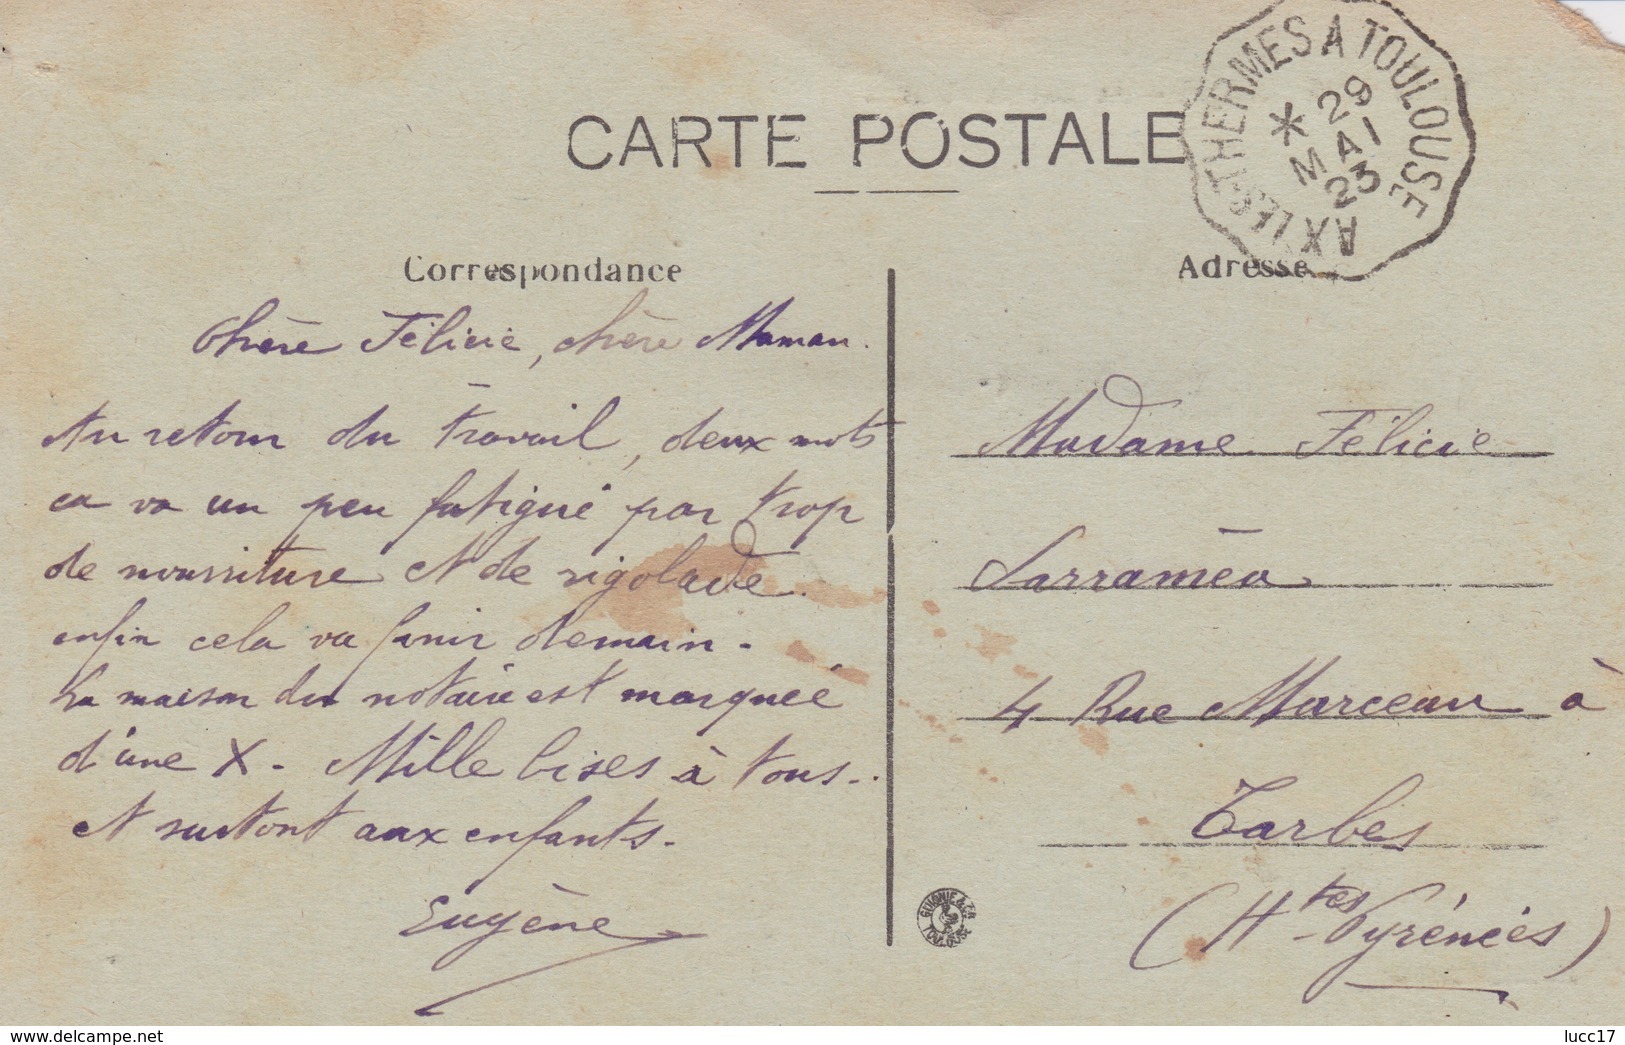 AX LES THERMES A TOULOUSE
* 29
MAI
23
CARTE POSTALE
Correspondance
Adresse
Chère Félicie, chère Maman.
Au retour du travail, deux mots
ca va un peu fatigué par trop
de nourriture et de rigolade.
enfin cela va finir demain -
La maison du notaire est marquée
d'une X - Mille bises à tous -
et surtout aux enfants -
Eugène
Madame Félicie
Larraméa
4 Rue Marceau à
Tarbes
(Htes-Pyrénées)
GUIONIE & Cie
TOULOUSE
www.delcampe.net
lucc17